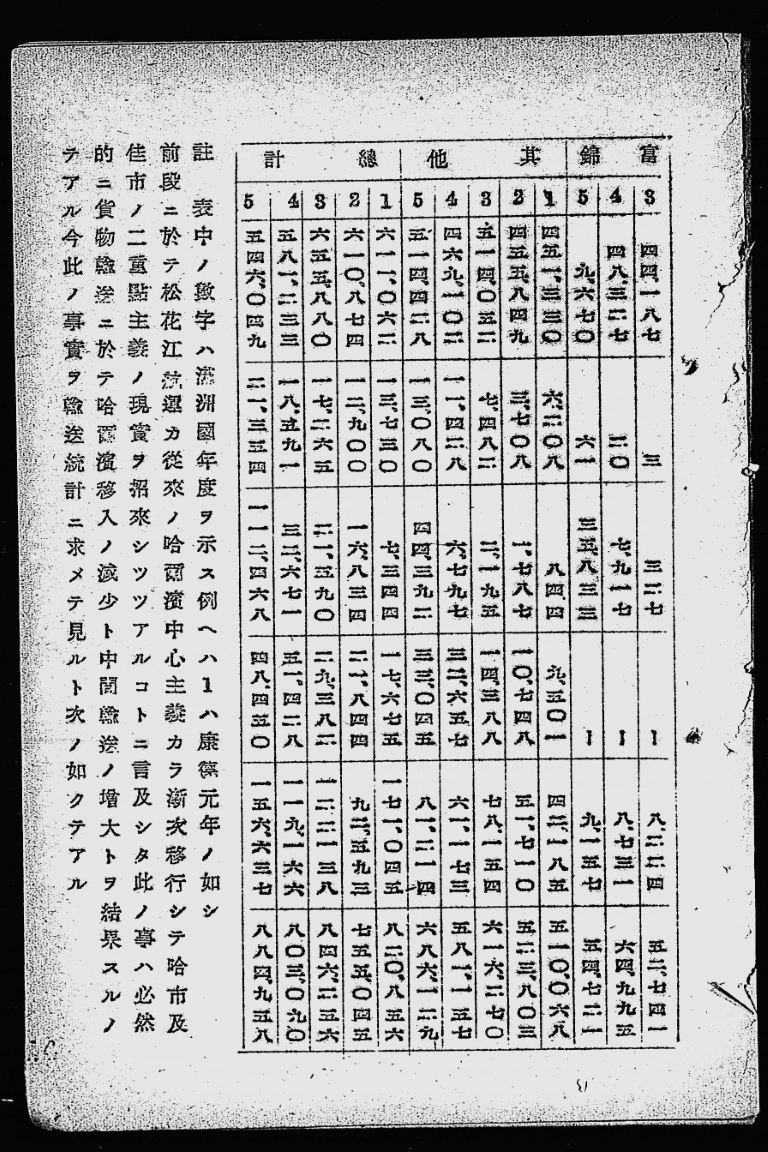 富錦
3 四四、一八七 三 三二七 ー 八、二二四 五二、七四一
4 四八、三二七 二〇 七、九一七 ー 八、七三一 六四、九九五
5 九、六七〇 六一 三五、八三三 ー 九、一五七 五四、七二一
其他
1 四五一、三三〇 六、二〇八 八四四 九、五〇一 四二、一八五 五一〇、〇六八
2 四五五、八四九 三、七〇八 一、七八七 一〇、七四八 五一、七一〇 五二三、八〇三
3 五一四、〇五二 七、四八二 二、一九五 一四、三八八 七八、一五四 六一六、二七〇
4 四六九、一〇二 一一、四二八 六、七九七 三二、六五七 六一、一七三 五八一、一五七
5 五一四、四二八 一三、〇八〇 四四、三九二 三三、〇四五 八一、二一四 六八六、一二九
總計
1 六一一、〇六二 一三、七三〇 七、三四四 一七、六七五 一七一、〇四五 八二〇、八五六
2 六一〇、八七四 一二、九〇〇 一六、八三四 二一、八四四 九二、五九三 七五五、〇四五
3 六五五、八八〇 一七、二六五 二一、五九〇 二九、三八二 一二二、一三八 八四六、二五六
4 五八一、二三三 一八、五九一 三二、六七一 五一、四二八 一一九、一六六 八〇三、〇九〇
5 五四六、〇四九 二一、三五四 一一二、四六八 四八、四五〇 一五六、六三七 八八四、九五八
註 表中ノ數字ハ滿洲國年度ヲ示ス例ヘハ1ハ康德元年ノ如シ
前段ニ於テ松花江航運カ從來ノ哈爾濱中心主義カラ漸次移行シテ哈市及
佳市ノ二重點主義ノ現實ヲ招來シツツアルコトニ言及シタ此ノ事ハ必然
的ニ貨物輸送ニ於テ哈爾濱移入ノ減少ト中間輸送ノ增大トヲ結果スルノ
テアル今此ノ事實ヲ輸送統計ニ求メテ見ルト次ノ如クテアル